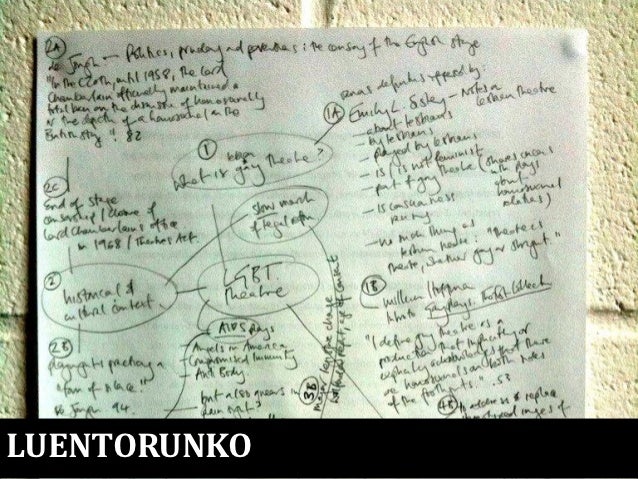 2A
de Jongh — Politics, prudery and perversions: the censoring of the English stage
"In the C20th, until 1958, the Lord
Chamberlain officially maintained a
total ban on the discussion of homosexuality
or the depiction of a homosexual on the
British stage". 82
2C
End of stage
censorship / closure of
Lord Chamberlain's office
in 1968 / Theatres Act.
1
What is gay theatre?
slow march
of legal reform
2
historical &
cultural context.
LGBT
Theatre
2B
playwrights practising a
"form of
de Jongh 94.
AIDS plays
Angels in America
Compromised Immunity
Anti Body.
but also queers in
plain sight
3B
major legal change
1A
various definitions offered by:
Emily L. Sisley — Notes on
lesbian theatre
- about lesbians
- by lesbians
- played by lesbians
- is / is not feminist
- part of gay theatre (shares concerns
with plays
about
homosexual
- is consciousness
raising
- no such thing as
lesbian theatre: "theatre is
theatre, whether gay or straight."
1B
William Hoffman
intro to Gay Plays, The First Collection
"I define gay theatre as a
production that implicitly or
explicitly acknowledges that there
are homosexuals on both sides
of the footlights." .53
4B
to address & replace
images of
LUENTORUNKO